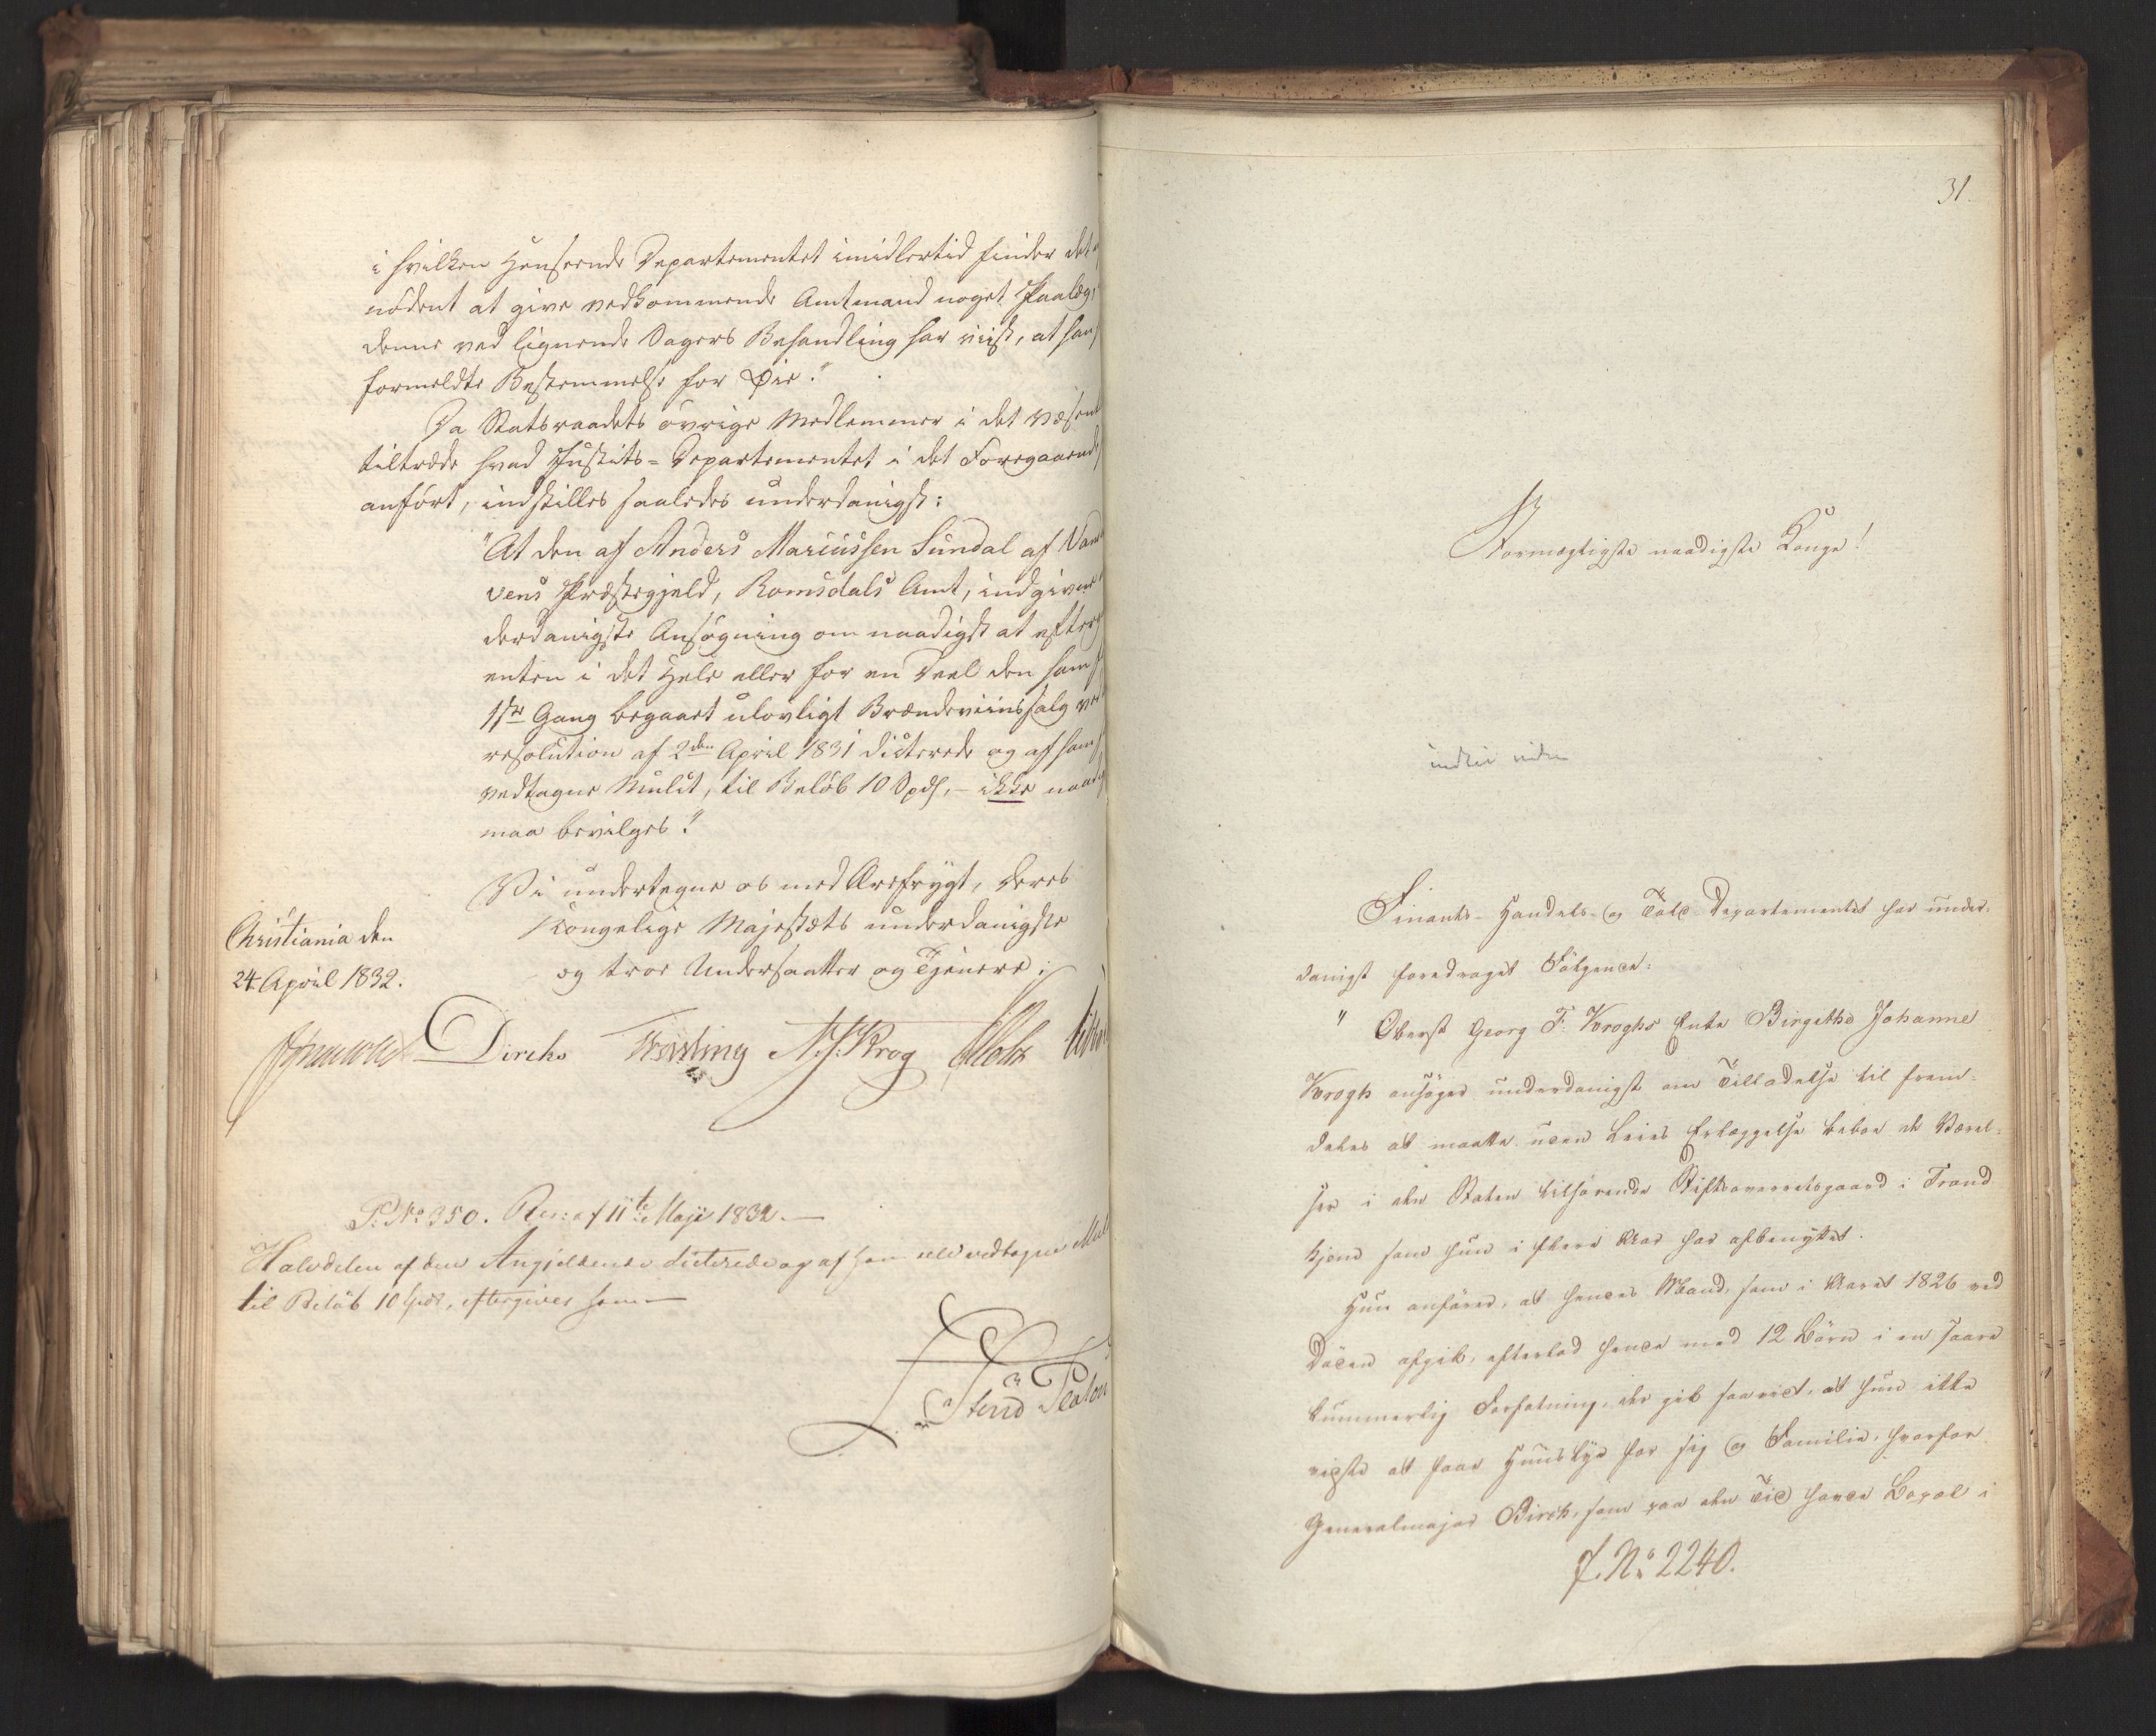 i hvilken Henseende Departementet imidlertid finder det
nödent at give vedkommende Amtmand noget Paalæg,
denne ved lignende Sagers Behandling har viist, at han
formeldte Bestemmelse for Øie."
Da Statsraadets övrige Medlemmer i det Væsent
tiltræde hvad Justits-Departementet i det Foregaaende
anfört, indstilles saaledes underdanigst:
"At den af Anders Marcussen Sundal af Van
vens Præstegjeld, Romsdals Amt, indgivne
derdanigste Ansögning om naadigst at efterg
enten i det Hele eller for en Deel den ham
1ste Gang begaaet ulovligt Brændeviinssalg ved
resolution af 2den April 1831 dicterede og af ham
vedtagne Mulct, til Belöb 10 Spd, - ikke naadig
maa bevilges."
Vi undertegne os med Ærefrygt, Deres
Kongelige Majestæts underdanigste
og troe Undersaatter og Tjenere;
Christiania den
24 April 1832.
Diriks Fasting Krog
P: No 350. Res: af 11te Maji 1832.
Halvdelen af den Angjeldende dicterede og af ham vedtagne Mul
til Belöb 10 Spd, eftergives ham
31.
Stormægtigste naadigste Konge!
Finants- Handels- og Told-Departementet har under-
danigst foredraget Fölgende:
" Oberst Georg F. Kroghs Enke Birgithe Johanne
Krogh ansöger underdanigst om Tilladelse til frem-
deles at maatte uden Leies Erlæggelse beboe de Værel-
ser i den Staten tilhörende Stiftsoverretsgaard i Trond
hjem som hun i flere Aar har afbenyttet.
Hun anförer, at hendes Mand, som i Aaret 1826 ved
Döden afgik, efterlod hende med 12 Börn i en saare
kummerlig Forfatning, der gik saavidt, at hun ikke
vidste at faae Huuslye for sig og Familie, hvorfor
Generalmajor Birch, som paa den Tid havde Bopæl i
J. No 2240.